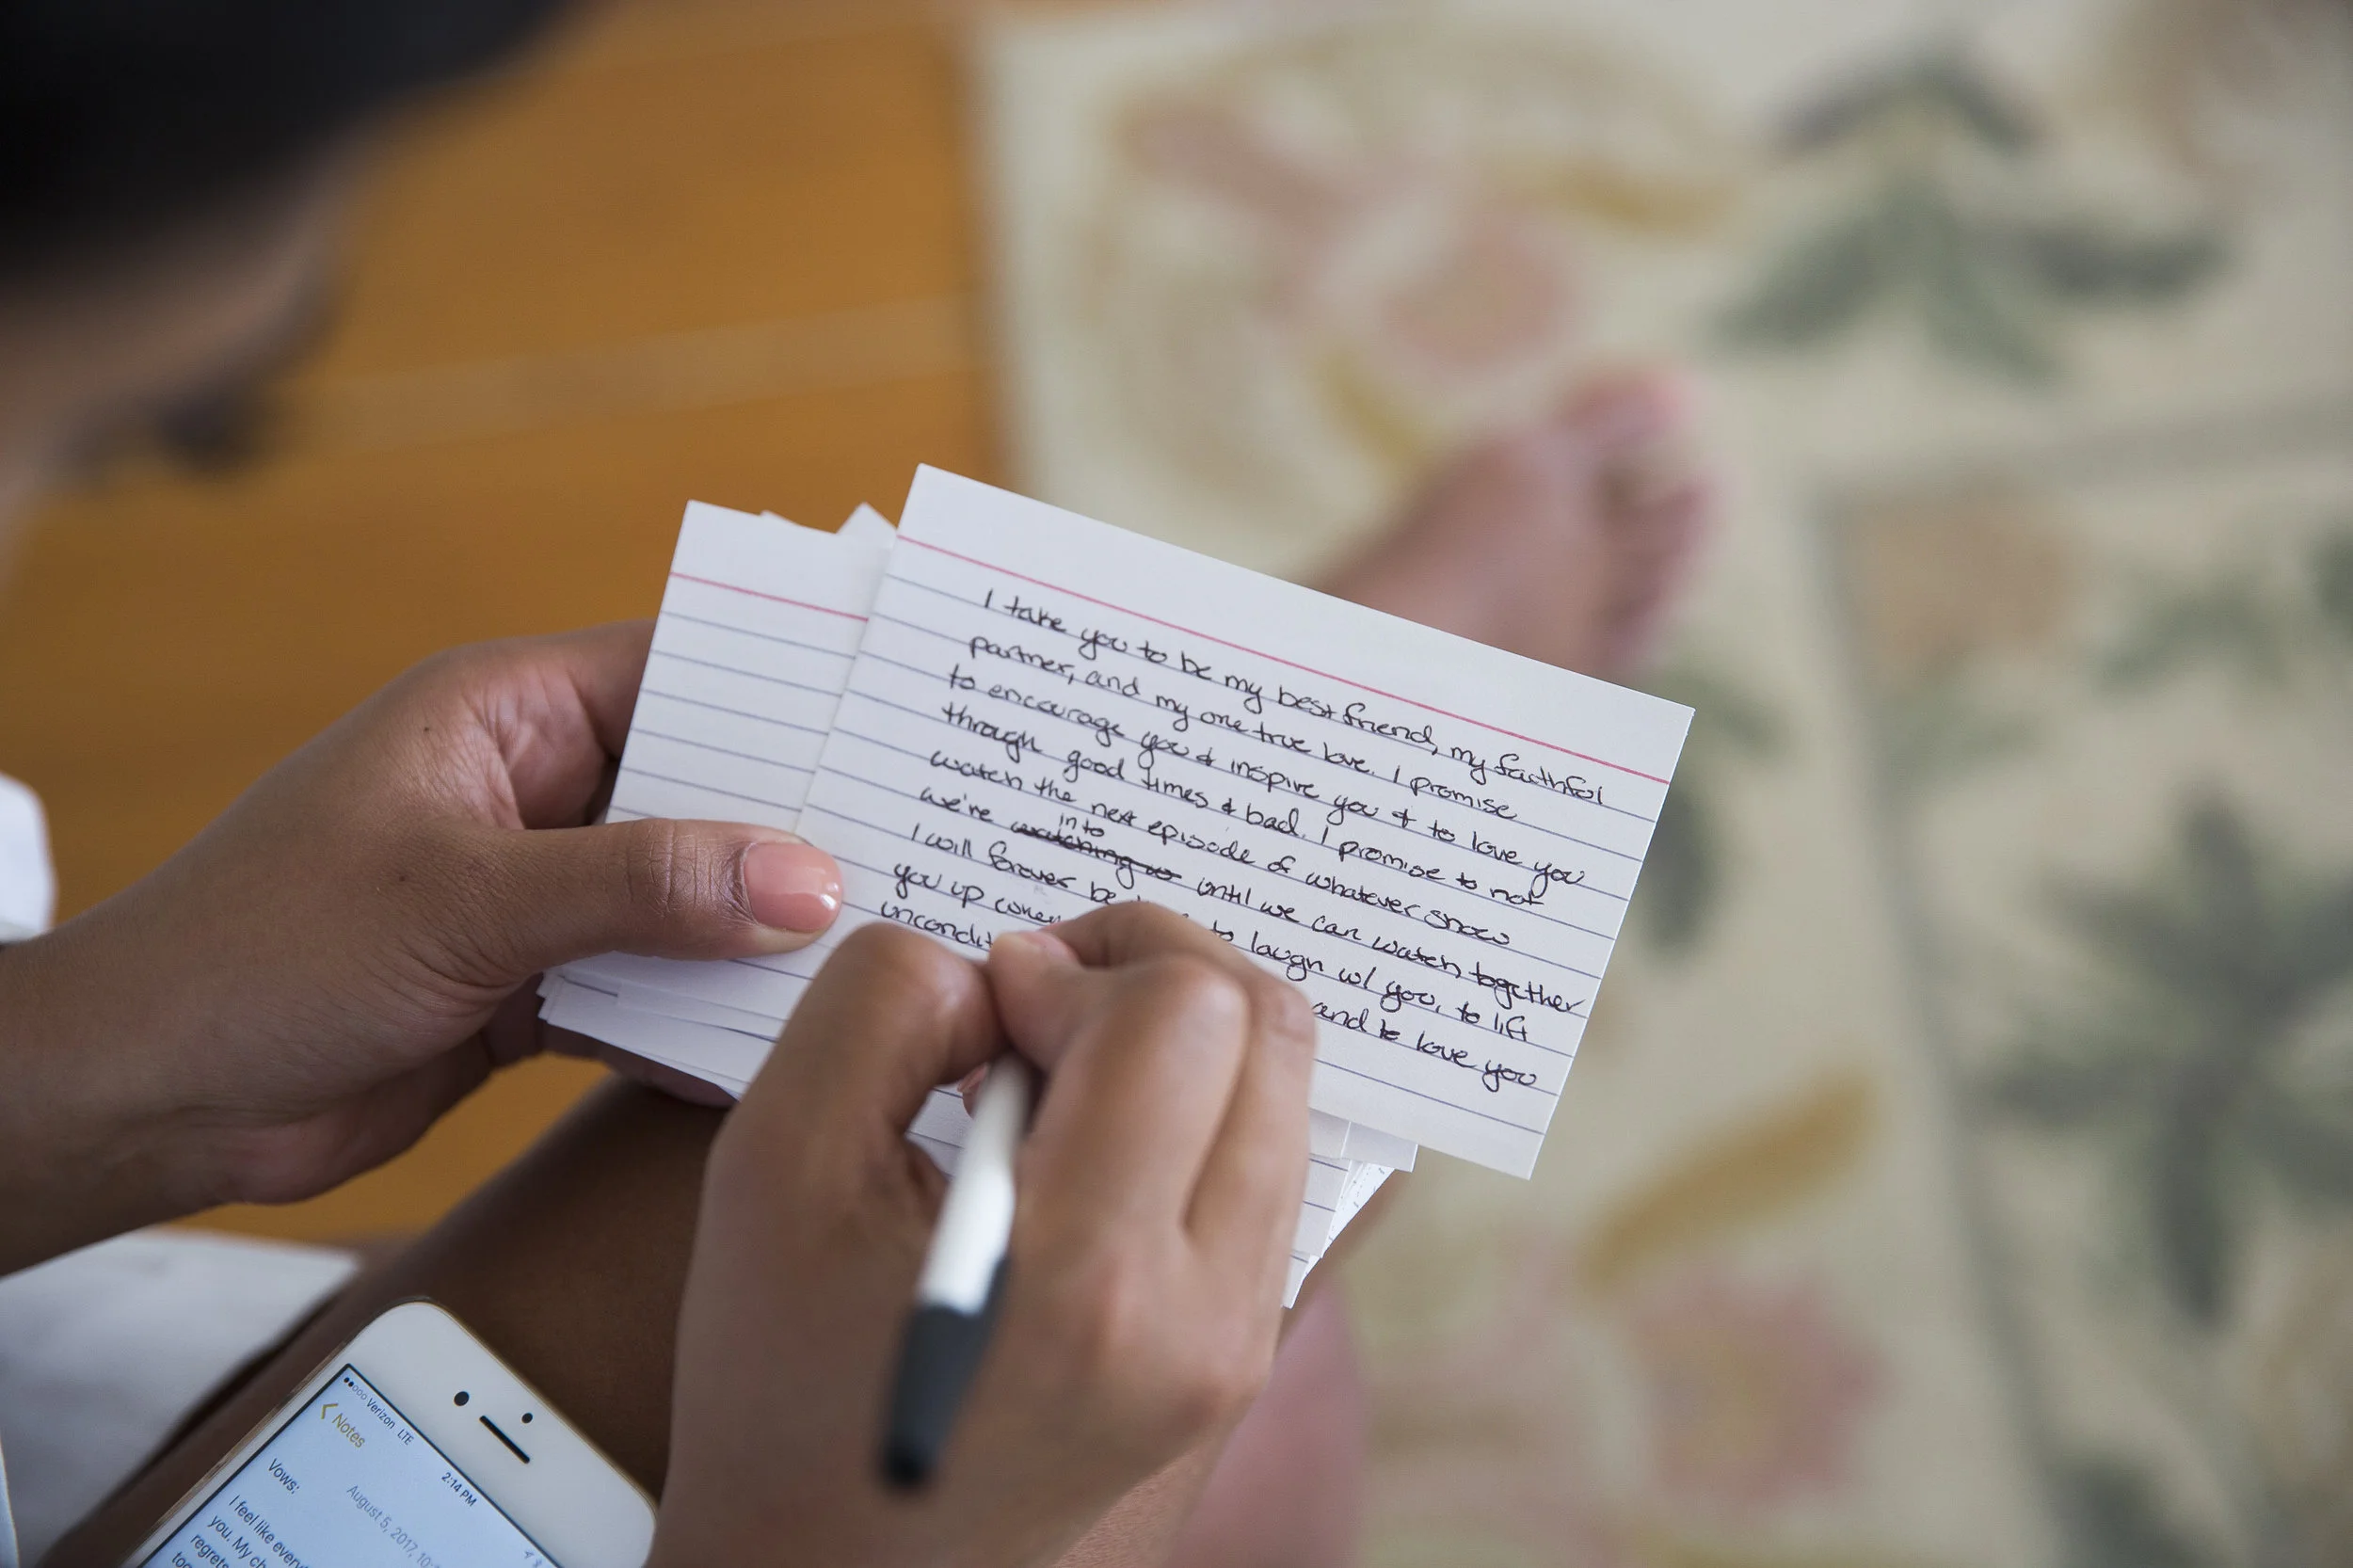 I take you to be my best friend, my faithful
partner, and my one true love. I promise
to encourage you & inspire you & to love you
through good times & bad. I promise to not
watch the next episode of whatever show
we're watching into until we can watch together
I will forever be to laugh w/ you, to lift
you up and to love you
Verizon LTE 2:14 PM
Notes
August 5, 2017, 10:
Vows:
I feel like every
you. My ch
regrets